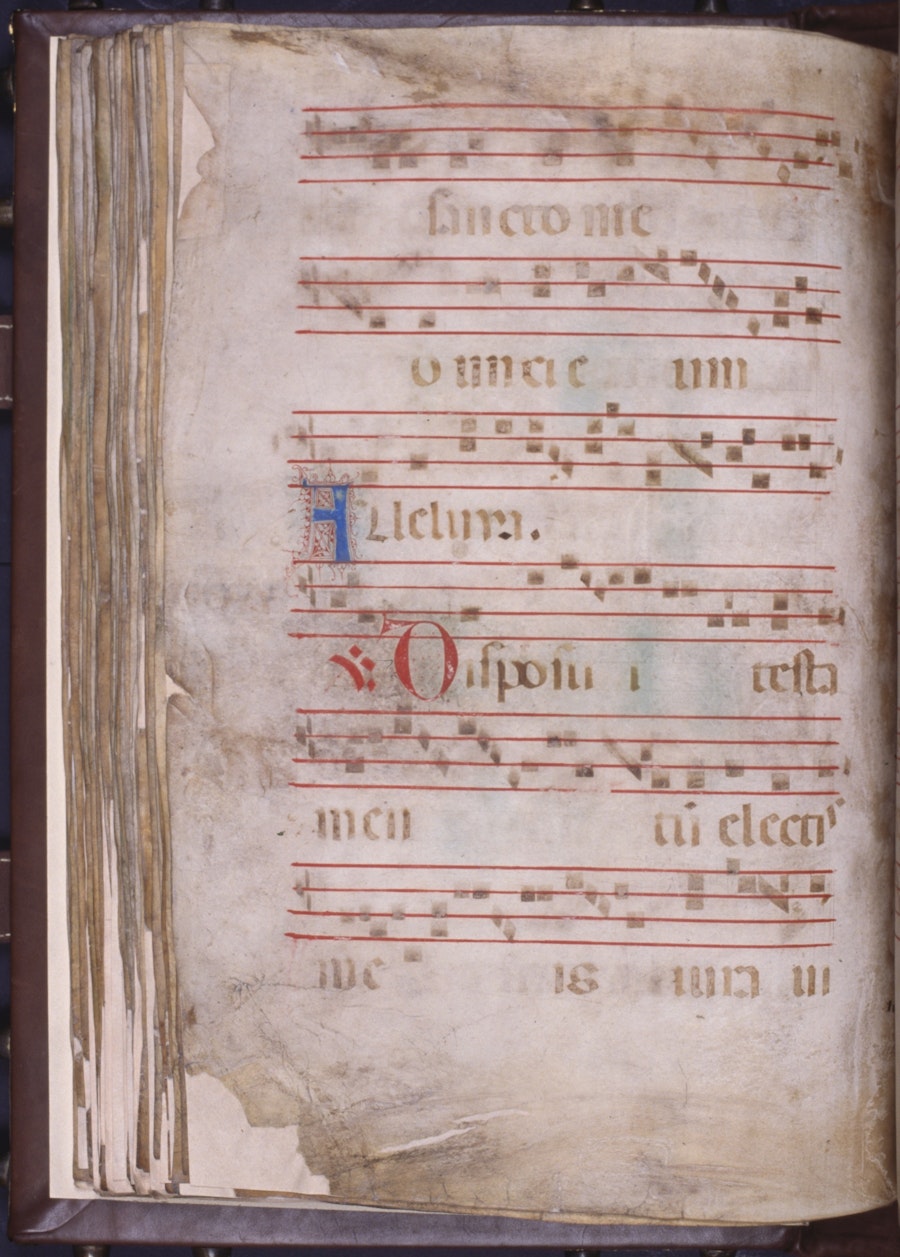 sancto me
o unxi e um
Alleluya.
℣ Disposui i testa
men tū electis
me is iura ui